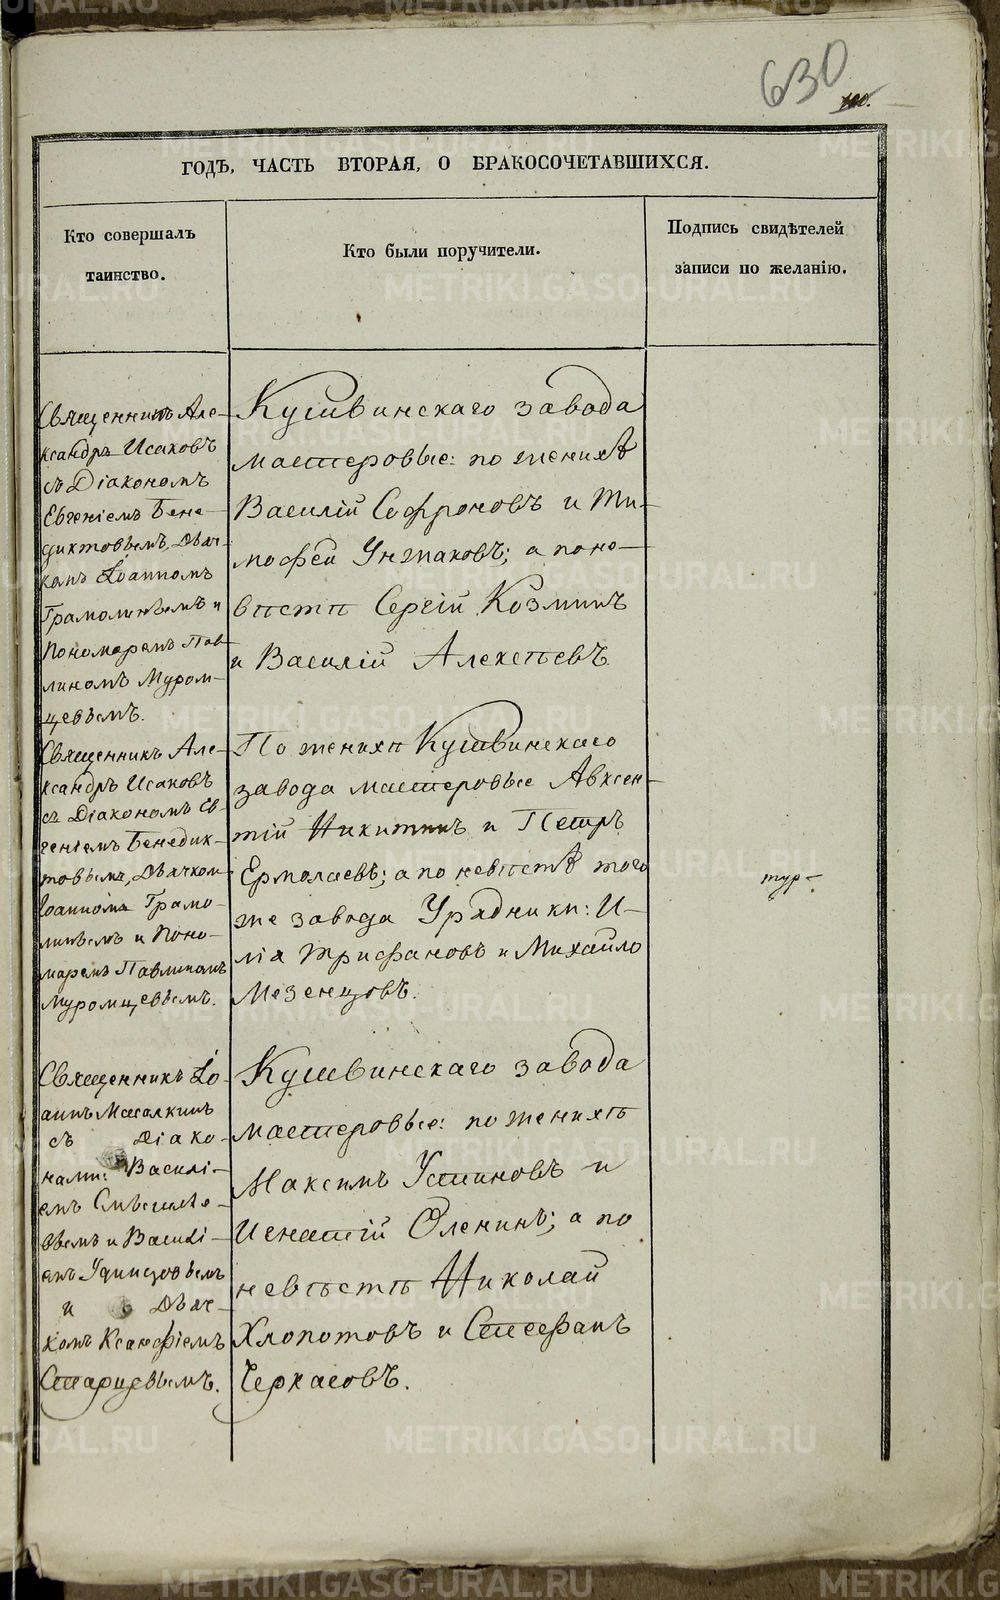 630
ГОДЪ, ЧАСТЬ ВТОРАЯ, О БРАКОСОЧЕТАВШИХСЯ.
Кто совершалъ
таинство.
Кто были поручители.
Подпись свидѣтелей
записи по желанію.
Священникъ Але-
ксандръ Исаковъ
съ Діакономъ
Евгеніемъ Бене-
диктовымъ, Дьяч-
комъ Іоанномъ
Грамолинымъ и
Пономаремъ Пав-
линомъ Муром-
цевымъ.
Кушвинскаго завода
мастеровые: по женихѣ
Василій Софроновъ и Ти-
мофей Унжаковъ; а по не-
вѣстѣ Сергій Козминъ
и Василій Алексѣевъ
Священникъ Але-
ксандръ Исаковъ
съ Діакономъ Ев-
геніемъ Бенедик-
товымъ, Дьячком
Іоанномъ Грамо-
линымъ и Поно-
маремъ Павлиномъ
Муромцевымъ.
По женихѣ Кушвинскаго
завода мастеровые Авксен-
тій Никитинъ и Петръ
Ермолаевъ; а по невѣстѣ того
же завода Урядники: И-
лія Трифановъ и Михайло
Мезенцовъ.
Священникъ Іо-
аннъ Масалкинъ
съ Діако-
нами: Василі-
емъ
вымъ и Василі-
емъ Удинцовымъ
и Дьяч-
комъ Ксанфіемъ
Старцевымъ.
Кушвинскаго завода
мастеровые: по женихѣ
Максимъ Устиновъ и
Игнатій Оленинъ; а по
невѣстѣ Николай
Хлопотовъ и Стефанъ
Черкасовъ.
METRIKI.GASO-URAL.RU